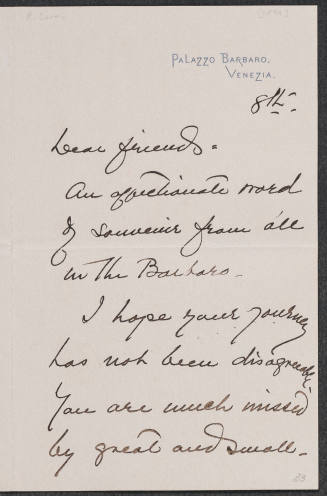 PALAZZO BARBARO.
VENEZIA.
8th.
Dear friends.
An affectionate word
of souvenir from all
in the Barbaro.
I hope your journey
has not been disagreeable.
You are much missed
by great and small.